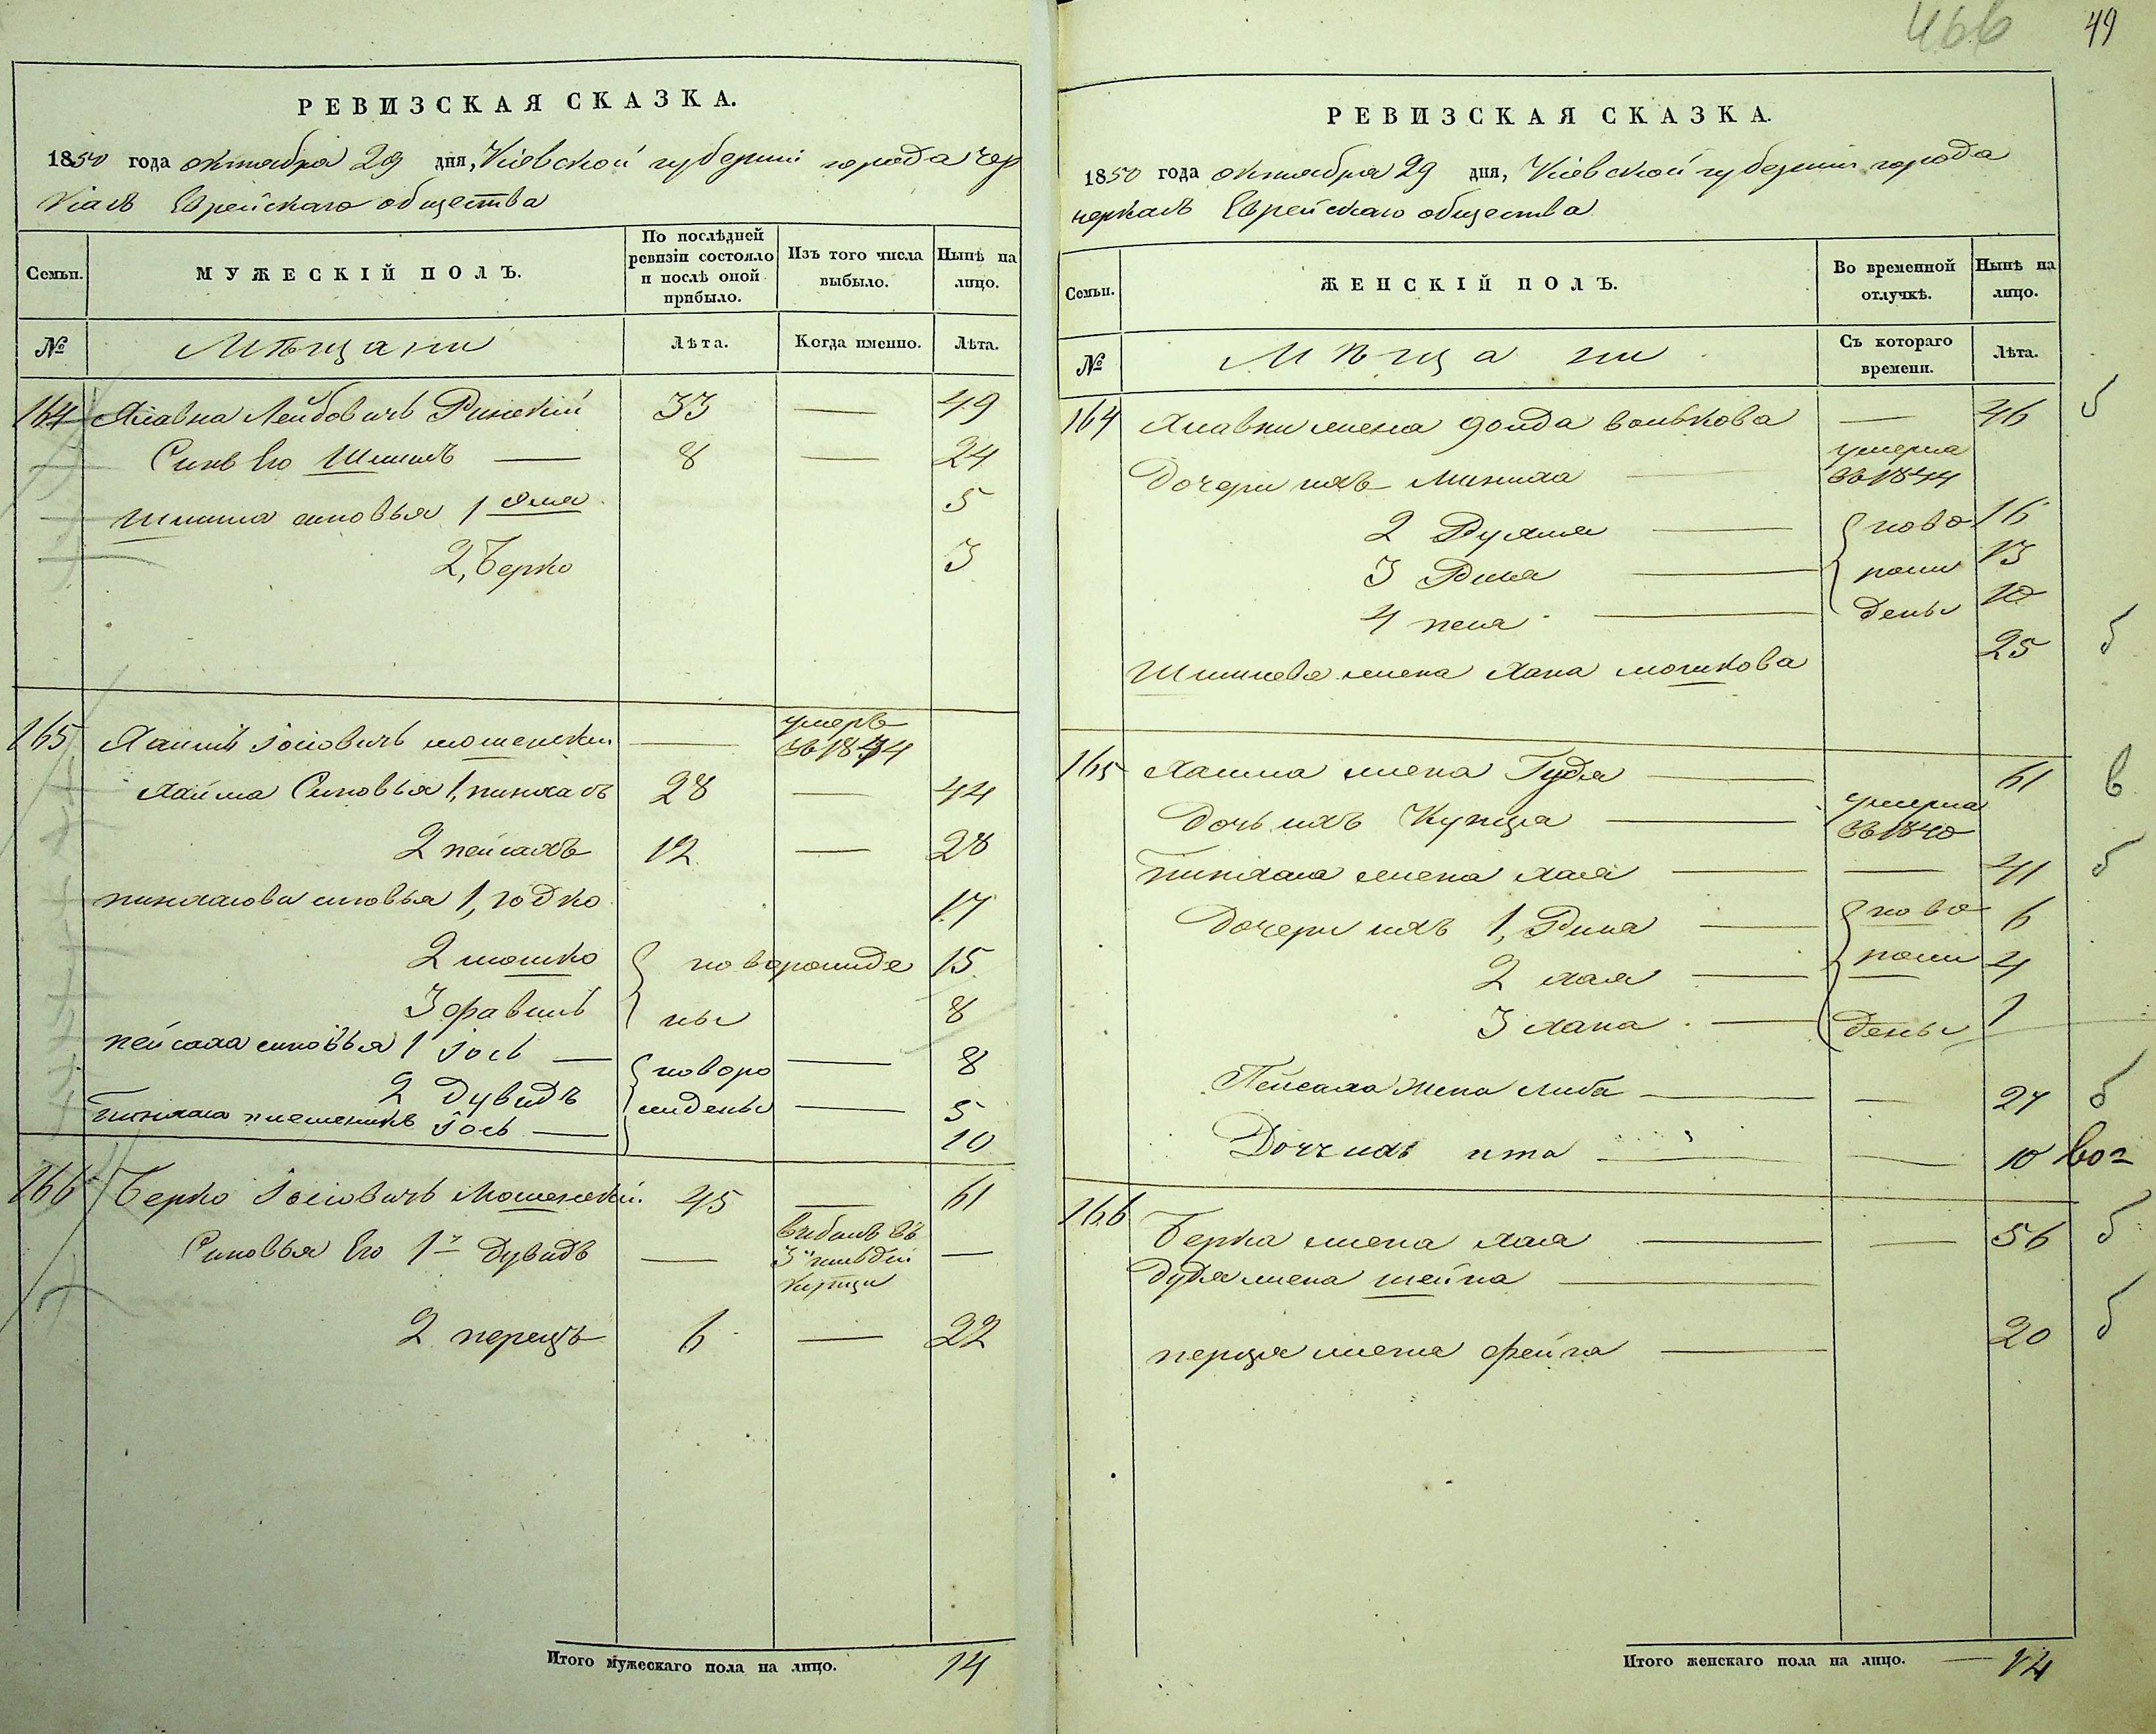 466
49
РЕВИЗСКАЯ СКАЗКА.
1850 года октября 29 дня, Кіевской губерніи города Чер
касъ Еврейскаго общества
Семьи.
МУЖЕСКІЙ ПОЛЪ.
По послѣдней ревизіи состояло и послѣ оной прибыло.
Изъ того числа выбыло.
Нынѣ на лицо.
№
Мѣщани
Лѣта.
Когда именно.
Лѣта.
164 Лейбовичъ 33 — 49
Синъ Его — 8 — 24
синовья 1 5
2, Берко 3
165 Хаимъ Іосіовичъ мошенски — умеръ въ 1844
Хайма Синовья 1, пинхасъ 28 — 44
2 пейсахъ 12 — 28
синовья 1, 17
2 мошко новорожде 15
3 ны 8
пейсаха синовья 1 Іось — новоро — 8
2 Дувидъ жденъ — 5
пинхаса племеникъ Іось — 10
166 Берко Іосіовичъ Мошенскій 45 — 61
Синовья Его 1й Дувидъ — въ 3 купци —
2 перецъ 6 — 22
Итого мужескаго пола на лицо. 14
РЕВИЗСКАЯ СКАЗКА.
1850 года октября 29 дня, Кіевской губерніи города
черкасъ Еврейскаго общества
Семьи.
ЖЕНСКІЙ ПОЛЪ.
Во временной отлучкѣ.
Нынѣ на лицо.
№
Мѣщани
Съ котораго времени.
Лѣта.
164 жена вольвкова — 46 б
Дочери ихъ — умерла въ 1844
2 — ново 16
3 Рися — рож 13
4 — дены 10
жена Хана мошкова 25 б
165 Хаима жена Гудя — 61 в
Дочь ихъ — умерла въ 1840
пинхаса жена хая — — 41 б
Дочери ихъ 1, — ново 6
2 хая — рож 4
3 хана — дены 1
Пейсаха жена Либа — — 27 б
Доч ихъ ита — — 10
166 Берка жена хая — — 56 б
Дудя жена шейна —
перця жена фейга — 20 б
Итого женскаго пола на лицо. — 14